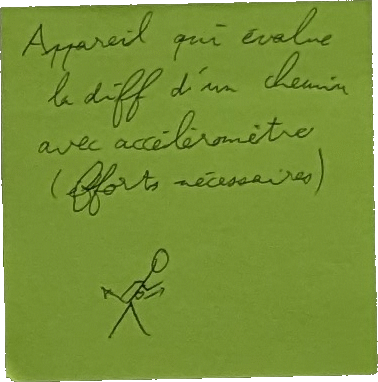 Appareil qui évalue
la diff d'un chemin
avec accéléromètre
(efforts nécessaires)